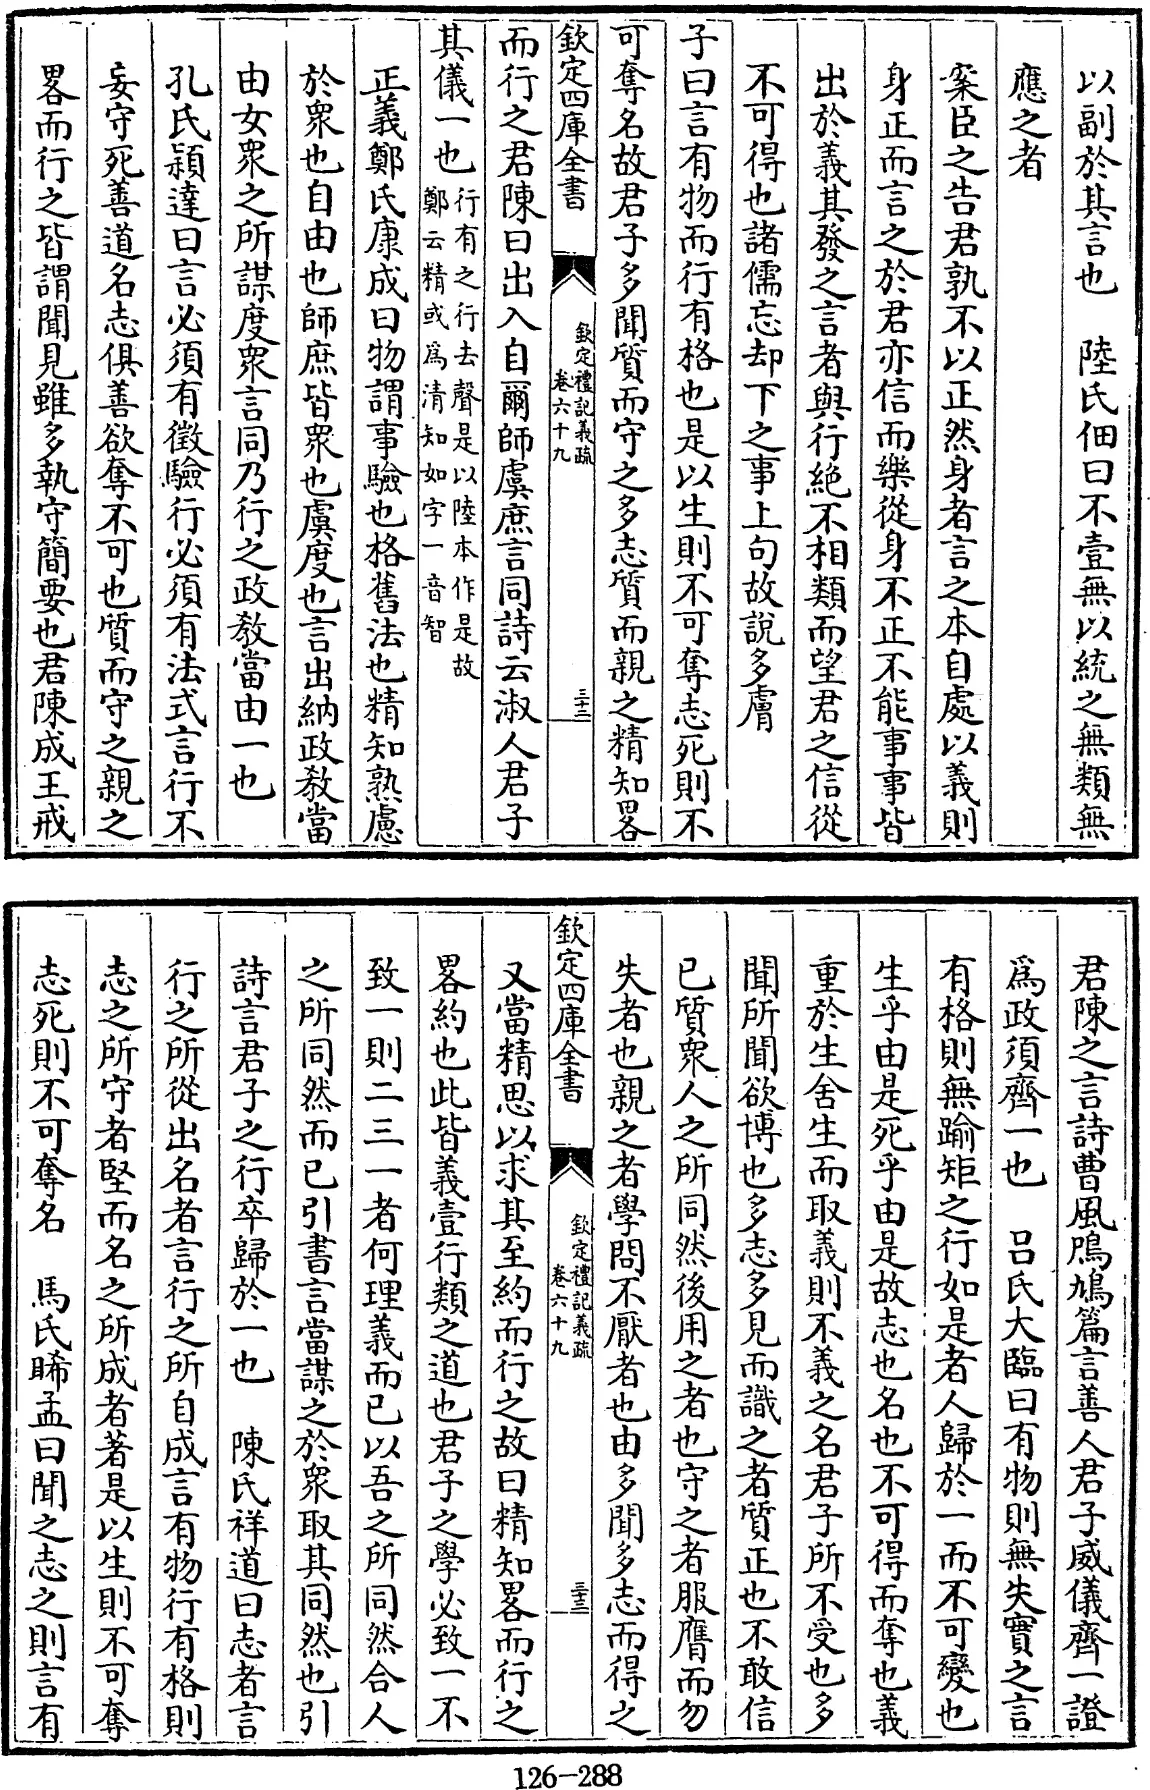 以副於其言也　陸氏佃曰不壹無以統之無類無
應之者
案臣之告君孰不以正然身者言之本自處以義則
身正而言之於君亦信而樂從身不正不能事事皆
出於義其發之言者與行絶不相類而望君之信從
不可得也諸儒忘却下之事上句故說多膚
子曰言有物而行有格也是以生則不可奪志死則不
可奪名故君子多聞質而守之多志質而親之精知畧
欽定四庫全書
欽定禮記義疏
卷六十九
三十二
而行之君陳曰出入自爾師虞庶言同詩云淑人君子
其儀一也行有之行去聲是以陸本作是故
鄭云精或爲清知如字一音智
正義鄭氏康成曰物謂事驗也格舊法也精知熟慮
於衆也自由也師庶皆衆也虞度也言出納政教當
由女衆之所謀度衆言同乃行之政教當由一也
孔氏穎達曰言必須有徵驗行必須有法式言行不
妄守死善道名志俱善欲奪不可也質而守之親之
畧而行之皆謂聞見雖多執守簡要也君陳成王戒
君陳之言詩曹風鳲鳩篇言善人君子威儀齊一證
爲政須齊一也　呂氏大臨曰有物則無失實之言
有格則無踰矩之行如是者人歸於一而不可變也
生乎由是死乎由是故志也名也不可得而奪也義
重於生舍生而取義則不義之名君子所不受也多
聞所聞欲博也多志多見而識之者質正也不敢信
已質衆人之所同然後用之者也守之者服膺而勿
失者也親之者學問不厭者也由多聞多志而得之
欽定四庫全書
欽定禮記義疏
卷六十九
三十三
又當精思以求其至約而行之故曰精知畧而行之
畧約也此皆義壹行類之道也君子之學必致一不
致一則二三一者何理義而已以吾之所同然合人
之所同然而已引書言當謀之於衆取其同然也引
詩言君子之行卒歸於一也　陳氏祥道曰志者言
行之所從出名者言行之所自成言有物行有格則
志之所守者堅而名之所成者著是以生則不可奪
志死則不可奪名　馬氏睎孟曰聞之志之則言有
126-288